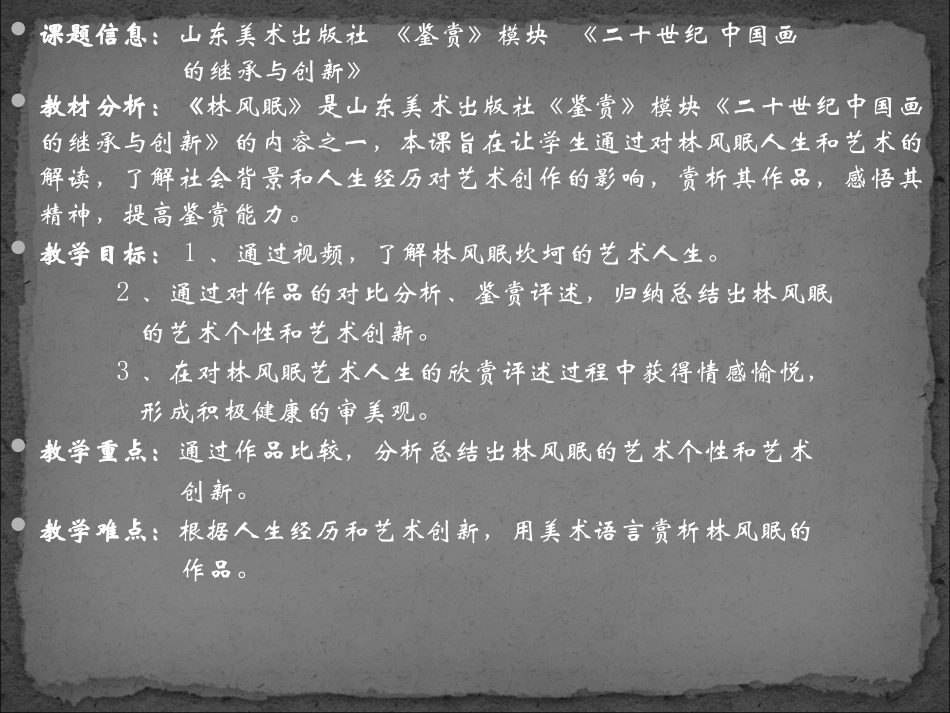 课题信息：山东美术出版社 《鉴赏》模块 《二十世纪 中国画
的继承与创新》
教材分析：《林风眠》是山东美术出版社《鉴赏》模块《二十世纪中国画
的继承与创新》的内容之一，本课旨在让学生通过对林风眠人生和艺术的
解读，了解社会背景和人生经历对艺术创作的影响，赏析其作品，感悟其
精神，提高鉴赏能力。
教学目标：１、通过视频，了解林风眠坎坷的艺术人生。
２、通过对作品的对比分析、鉴赏评述，归纳总结出林风眠
的艺术个性和艺术创新。
３、在对林风眠艺术人生的欣赏评述过程中获得情感愉悦，
形成积极健康的审美观。
教学重点：通过作品比较，分析总结出林风眠的艺术个性和艺术
创新。
教学难点：根据人生经历和艺术创新，用美术语言赏析林风眠的
作品。